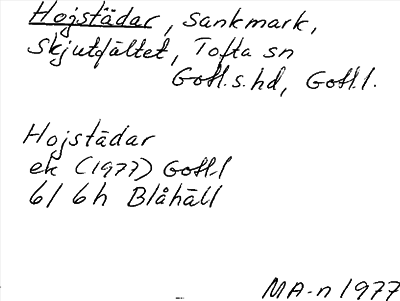 Hojstädar, sankmark,
Skjutfältet, Tofta sn
Gotl.s.hd, Gotl.l.
Hojstädar
ek (1977) Gotl-l
6I 6h Blåhäll
MA-n 1977